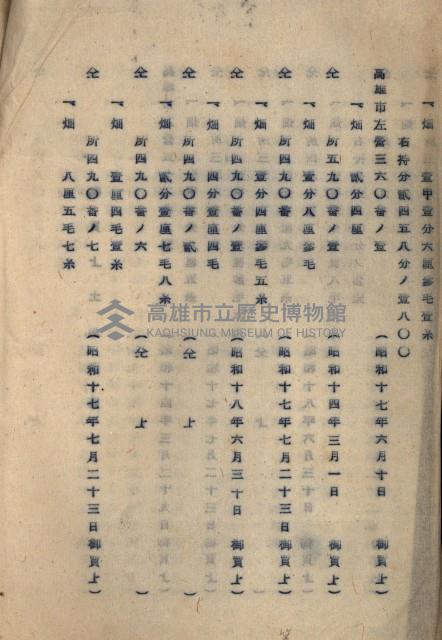 一畑 壹甲壹分六厘參毛壹糸
右持分貳四五八分ノ壹八〇〇
高雄市左營三六〇番ノ壹 (昭和十七年六月十日 御買上)
一畑 貳分四厘
仝 所五九〇番ノ壹 (昭和十四年三月一日 御買上)
一畑 壹分八厘參毛
仝 所四九〇番 (昭和十七年七月二十三日御買上)
一畑 壹分四厘參毛五糸
仝 所四九〇番ノ壹 (昭和十八年六月三十日 御買上)
一畑 四分壹厘四毛
仝 所四九〇番ノ貳 (仝 上 )
一畑 貳分壹厘七毛八糸
仝 所四九〇番ノ六 (仝 上 )
一畑 壹厘四毛壹糸
仝 所四九〇番ノ七 (昭和十七年七月二十三日御買上)
一畑 八厘五毛七糸
高雄市立歷史博物館
KAOHSIUNG MUSEUM OF HISTORY